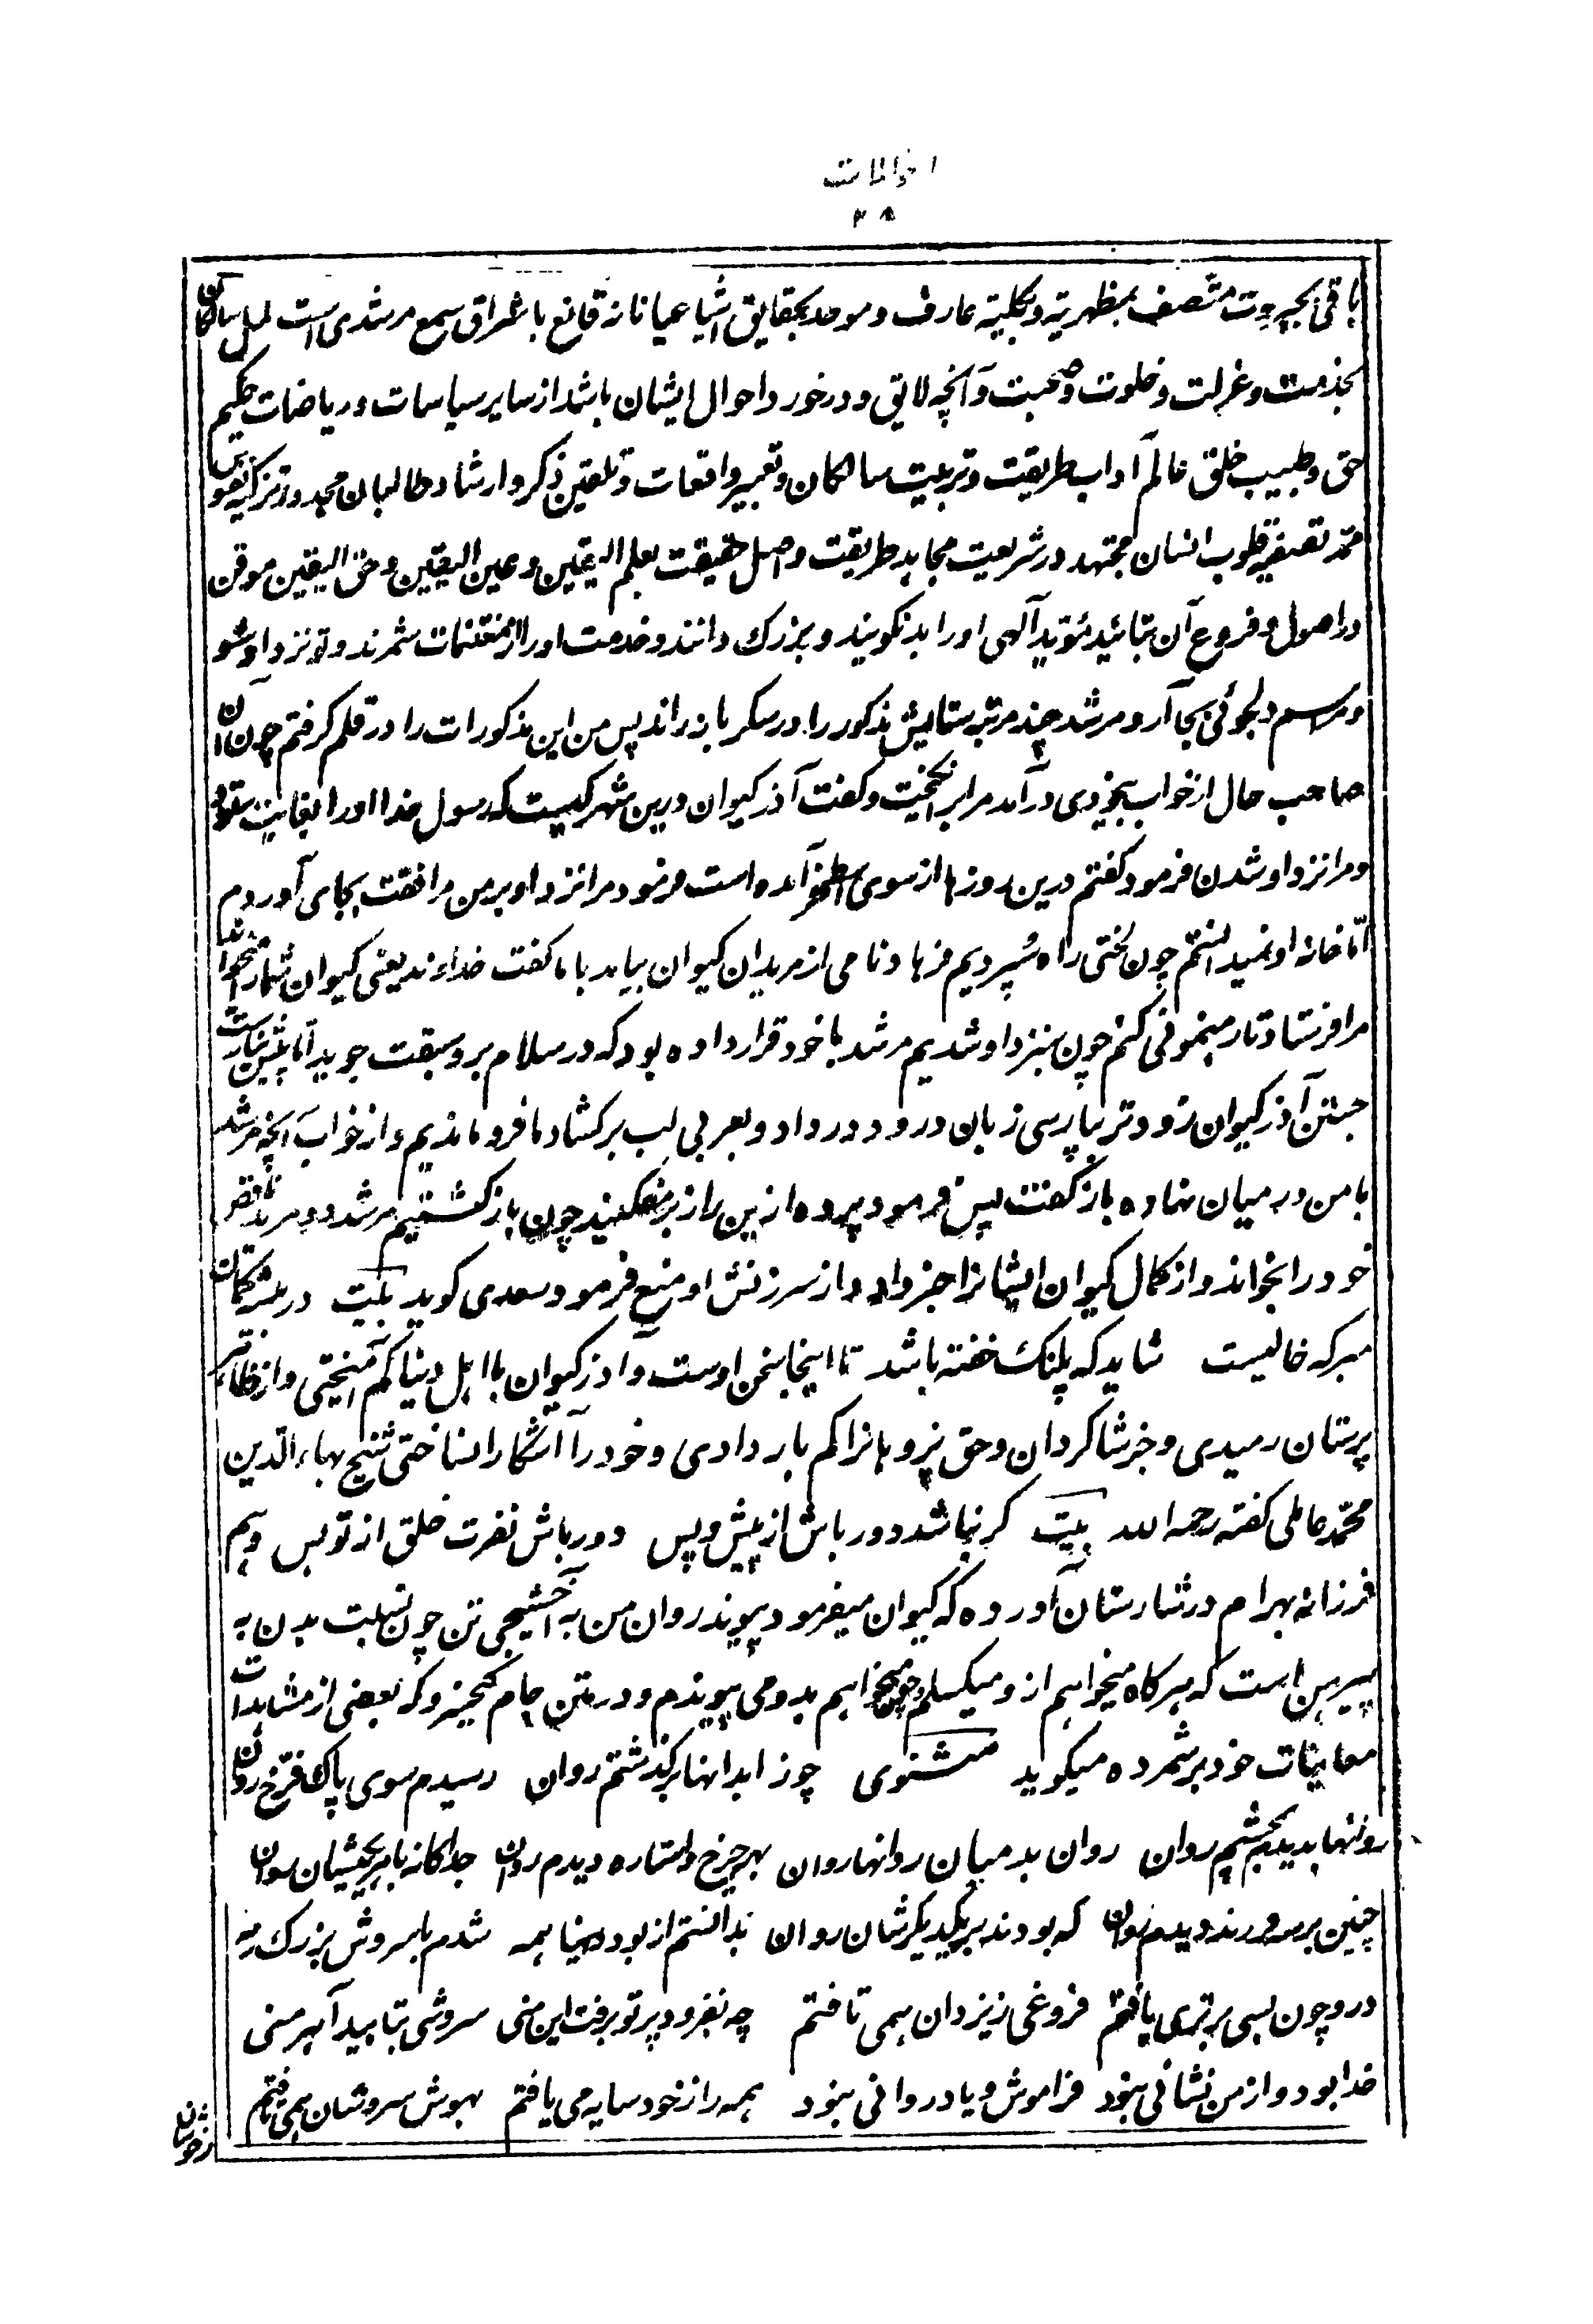 ۳۸
باقی بجبروت متصف بمظهریة و بکلیة عارف و موحد بحقایق اشیا عیانا نه قانع باشراق سمع مرشدی است
بخدمت و عزلت و خلوت و صحبت و آنچه لائق و درخور احوال ایشان باشد از سایر سیاسات و ریاضات حکیم
حق و طبیب خلق عالم آداب طریقت و تربیت سالکان و تعبیر واقعات و تلقین ذکر و ارشاد طالبان مجد در تزکیه نفوس
تصفیه قلوب انسان مجتهد در شریعت مجاهد طریقت واصل حقیقت بعلم الیقین و عین الیقین و حق الیقین موقن
در اصول و فروع آن بتائید مؤید آلهی او را بد نکویند و بزرک دانند و خدمت او را از مغتنمات شمرند و تو نزد او شو
و مراسم دلجوئی بجا آر و مرشد چند مرتبه ستایش مذکور را در سکر بازراند پس من این مذکورات را در قلم کرفتم چون آن
صاحب حال از خواب بیخودی در آمد مرا برانکیخت و کفت آذر کیوان درین شهر کیست که رسول خدا او را بغایت ستود
و مرا نزد او شدن فرمود کفتم درین روزها از سوی اصطخر آمده است فرمود مرا نزد او بر من مرافقت بجای آوردم
امّا خانه او نمیدانستم چون لختی راه سپردیم فرهاد نامی از مریدان کیوان بیامد با ما کفت خداوند یعنی کیوان شما را میخواند
مرا فرستاد تا رهنمونی کنم چون بنزد او شدیم مرشد با خود قرار داده بود که در سلام برو سبقت جوید امّا
جستن آذر کیوان زودتر بپارسی زبان درود در داد و بعربی لب برکشاد ما فرو ماندیم و از خواب آنچه مرشد
با من در میان نهاده بازکفت پس فرمود پرده ازین راز برمفکنید چون بازکشتیم مرشد دو مرید
خود را بخواند و از کمال کیوان ایشانرا خبر داد و از سرزنش او منع فرمود سعدی کوید بیت در بیشه کمان
مبر که خالیست شاید که پلنک خفته باشد تا اینجا سخن اوست و آذر کیوان با اهل دنیا کم آمیختی و از ظاهر
پرستان رمیدی و جز شاکردان و حق پژوهانرا کم بار دادی و خود را آشکارا نساختی شیخ بهاء الدین
محمّد عاملی کفته رحمه الله بیت کر نباشد دور باش از پیش و پس دور باش نفرت خلق از تو بس و هم
فرزانه بهرام در شارستان آورده که کیوان میفرمود پیوند روان من به آخشیجی تن چون نسبت بدن به
پیرهن است که هرکاه میخواهم ازو میکسلم و چون میخواهم بدو می پیوندم و در متن جام کیخسرو که بعضی از مشاهدات
معاینات خود برشمرده میکوید مثنوی چو ز ابدانها برکذشتم روان رسیدم سوی پاک فرخ روان
روانها بدیدم بچشم روان روان بد میان روانها روان بهر چرخ و استاره دیدم روان جداکانه با هر یکیشان روان
چنین بر سه فرزند دیدم روان که بودند بر یکدیکرشان روان بدانستم از بودنیها همه شدم با سروش بزرک رمه
درو چون بسی برتری یافتم فروغی ز یزدان همی تافتم چه بفزود پرتو برفت این منی سروشی بتابید آهرمنی
خدا بود و از من نشانی نبود فراموش و یاد روانی نبود همه را ز خود سایه می یافتم بهوش سروشان همی تافتم